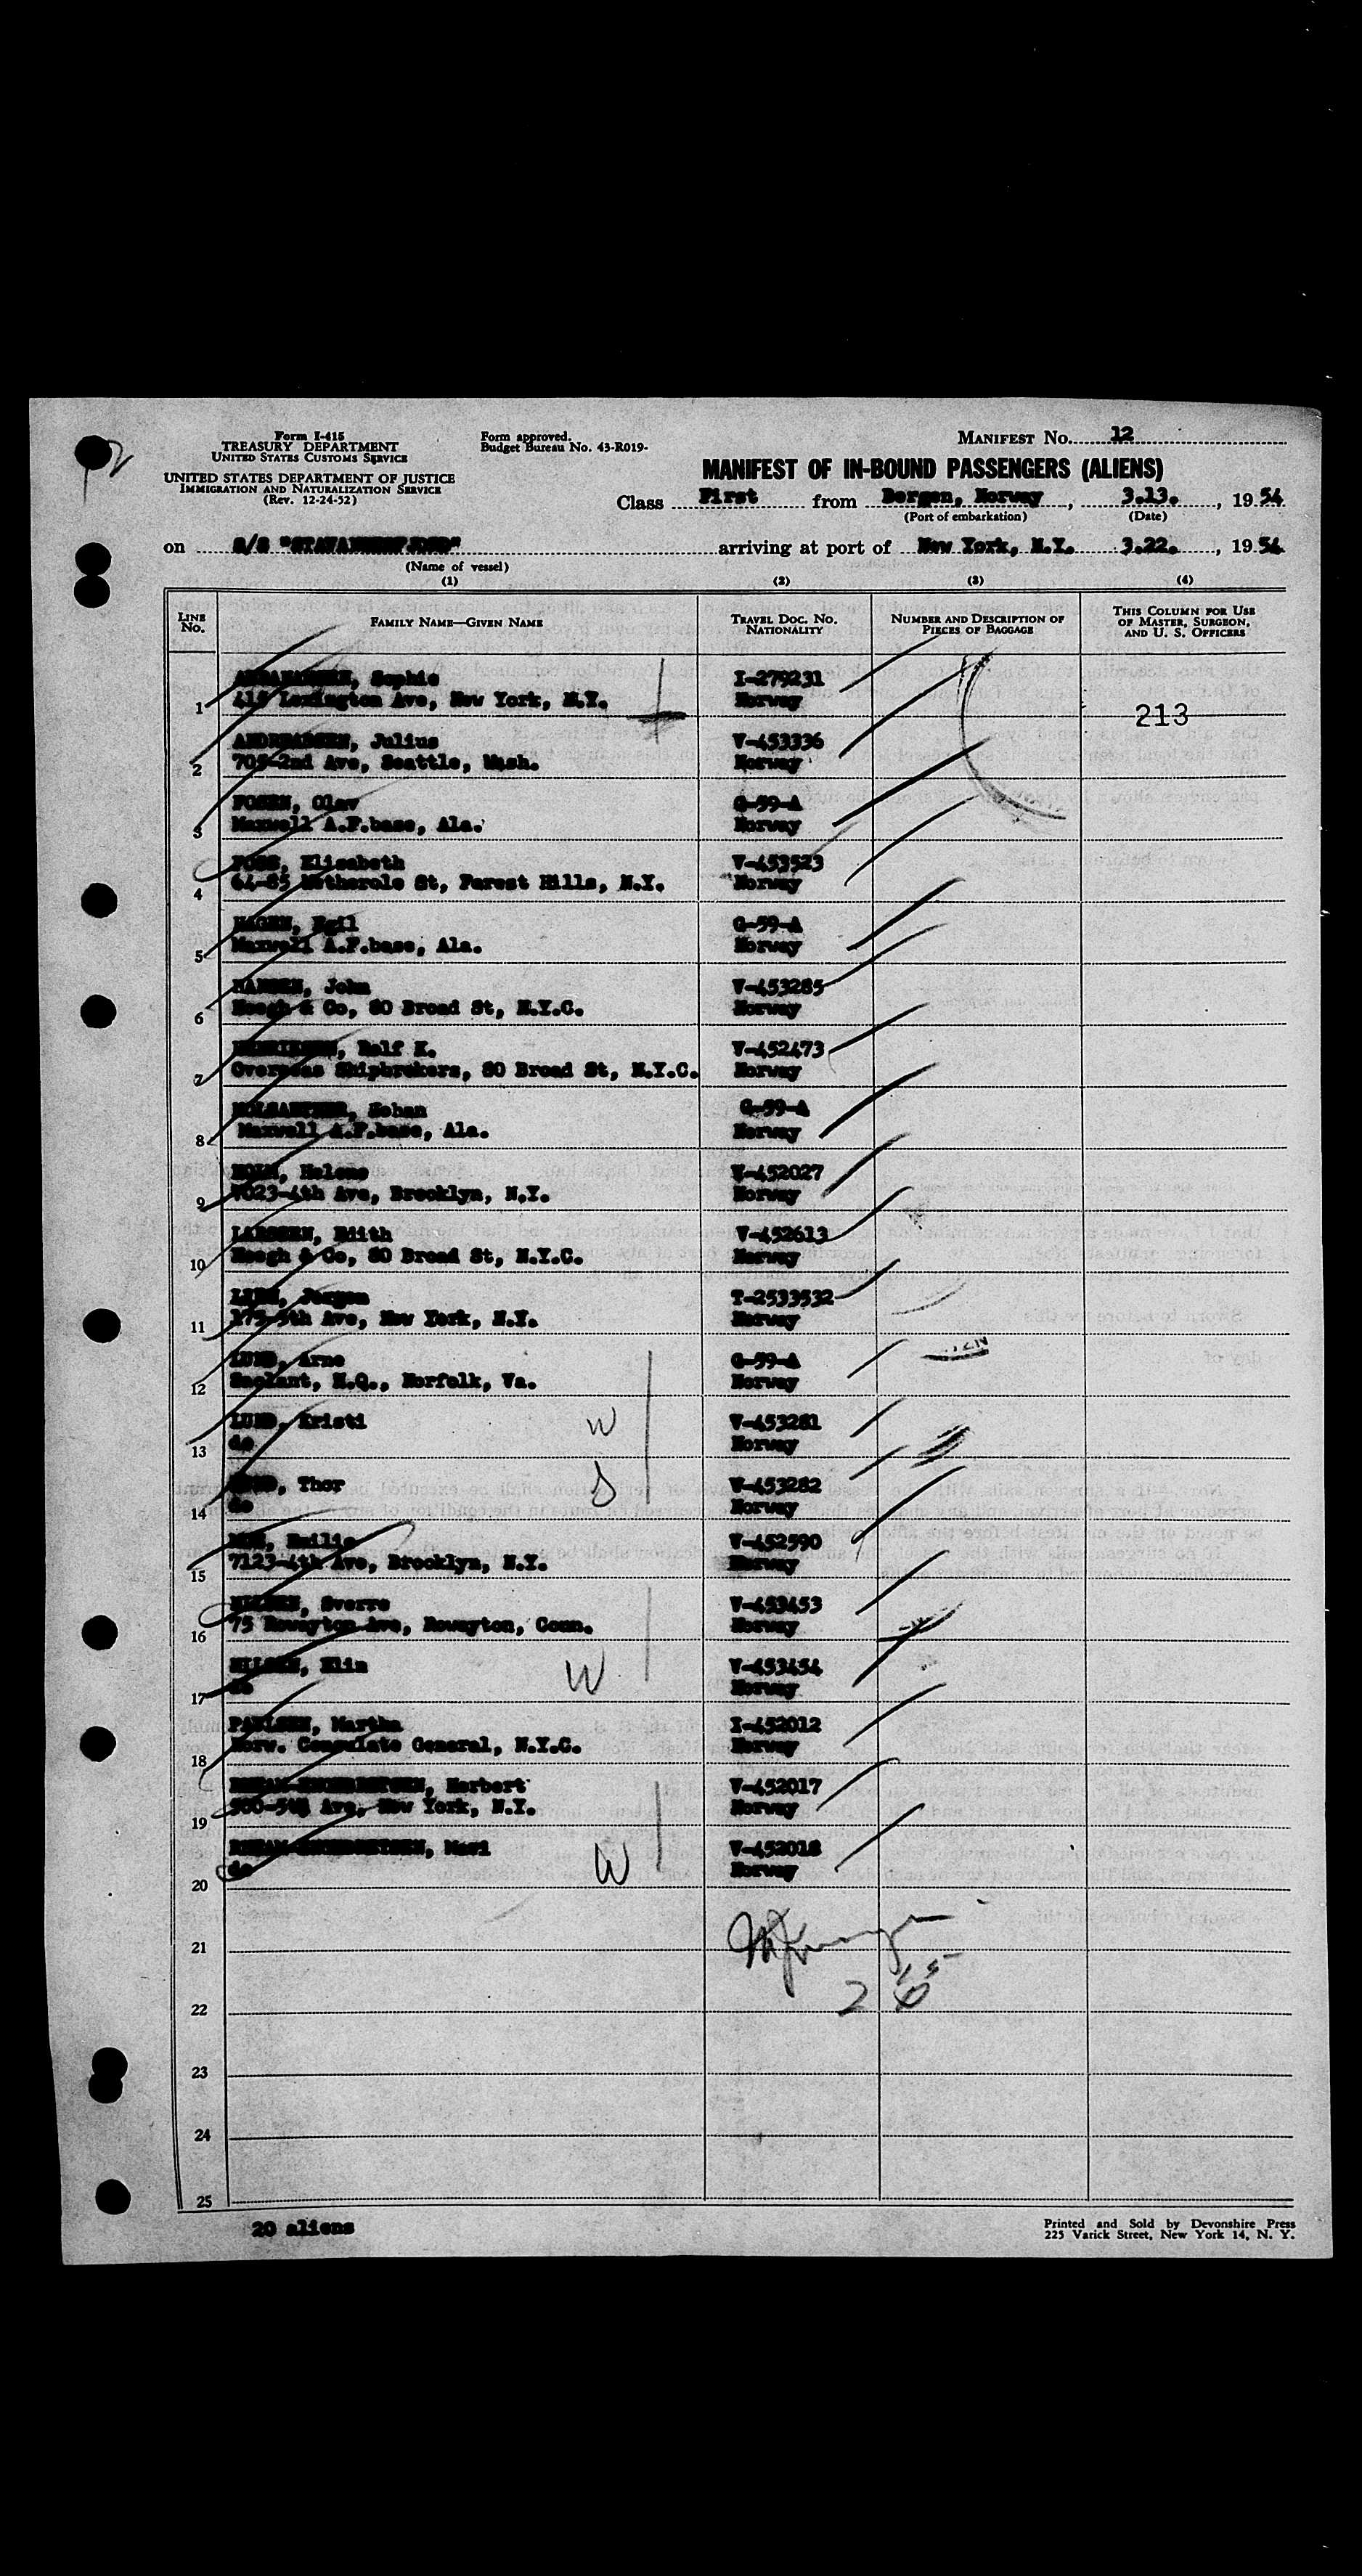 Form I-415
TREASURY DEPARTMENT
UNITED STATES CUSTOMS SERVICE
UNITED STATES DEPARTMENT OF JUSTICE
IMMIGRATION AND NATURALIZATION SERVICE
(Rev. 12-24-52)
Form approved.
Budget Bureau No. 43-R019-
MANIFEST No. 12
MANIFEST OF IN-BOUND PASSENGERS (ALIENS)
Class First from Bergen, Norway, 3.13., 1954
(Port of embarkation) (Date)
on S/S "STAVANGERFJORD" arriving at port of New York, N.Y. 3.22., 1954
(Name of vessel)
(1) (2) (3) (4)
LINE No. FAMILY NAME—GIVEN NAME TRAVEL DOC. No. NATIONALITY NUMBER AND DESCRIPTION OF PIECES OF BAGGAGE THIS COLUMN FOR USE OF MASTER, SURGEON, AND U. S. OFFICERS
1 Sophie I-279231
Lexington Ave, New York, N.Y. Norway
213
2 ANDREASSEN, Julius V-453336
705-2nd Ave, Seattle, Wash. Norway
3 FOSEN, Olav G-59-A
Maxwell A.F.base, Ala. Norway
4 FOSS, Elisabeth V-453523
64-85 Wetherole St, Forest Hills, N.Y. Norway
5 HAGEN, Egil G-59-A
Maxwell A.F.base, Ala. Norway
6 HANSEN, John V-453285
Hoegh & Co, 80 Broad St, N.Y.C. Norway
7 HENRIKSEN, Rolf K. V-452473
Overseas Shipbrokers, 80 Broad St, N.Y.C. Norway
8 Johan G-59-A
Maxwell A.F.base, Ala. Norway
9 HOLM, Helene V-452027
7023-4th Ave, Brooklyn, N.Y. Norway
10 LARSSEN, Edith V-452613
Hoegh & Co, 80 Broad St, N.Y.C. Norway
11 Jorgen T-2533532
175-5th Ave, New York, N.Y. Norway
12 LUND, Arne G-59-A
Saclant, H.Q., Norfolk, Va. Norway
13 LUND, Kristi W V-453281
do Norway
14 LUND, Thor S V-453282
do Norway
15 MOE, Emilie V-452590
7123-4th Ave, Brooklyn, N.Y. Norway
16 NILSEN, Sverre V-453453
75 Rowayton Ave, Rowayton, Conn. Norway
17 NILSEN, Elin W V-453454
do Norway
18 PAULSEN, Martha I-452012
Norw. Consulate General, N.Y.C. Norway
19 Herbert V-452017
500-5th Ave, New York, N.Y. Norway
20 Mari W V-452018
do Norway
21
22
23
24
25
20 aliens
Printed and Sold by Devonshire Press
225 Varick Street, New York 14, N. Y.